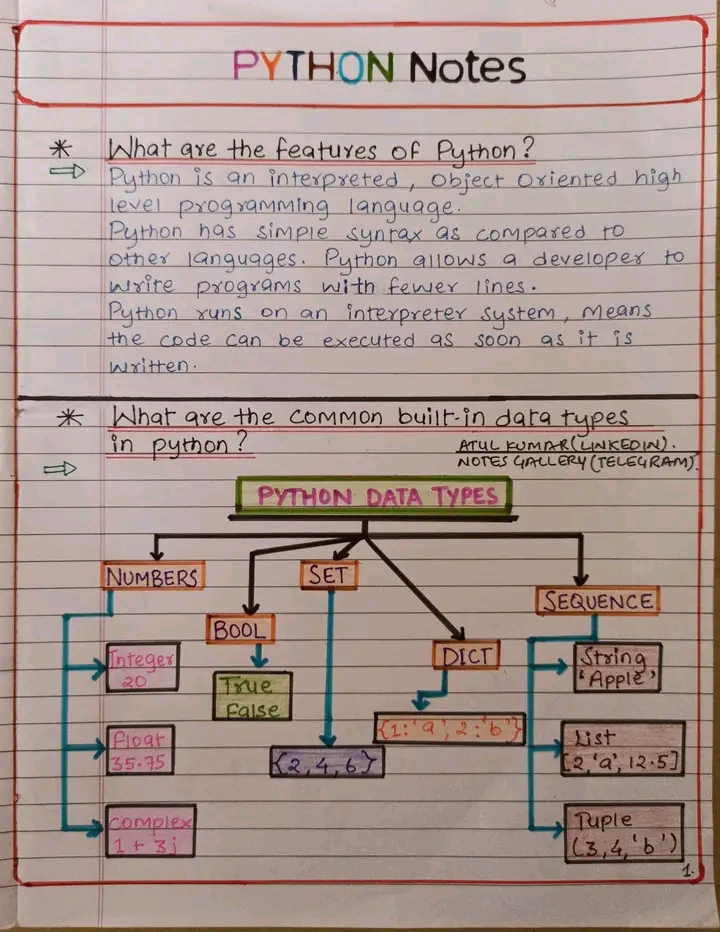 PYTHON Notes
* What are the features of Python?
⇒ Python is an interpreted, Object Oriented high
level programming language.
Python has simple syntax as compared to
other languages. Python allows a developer to
write programs with fewer lines.
Python runs on an interpreter system, means
the code can be executed as soon as it is
written.
* What are the common built-in data types
in python?
ATUL KUMAR (LINKEDIN).
NOTES GALLERY (TELEGRAM).
⇒
PYTHON DATA TYPES
NUMBERS
Integer
20
float
35.75
complex
1 + 3j
BOOL
True
False
SET
{2, 4, 6}
DICT
{1:'a', 2:'b'}
SEQUENCE
String
'Apple'
List
[2,'a', 12.5]
Tuple
(3,4,'b')
1.